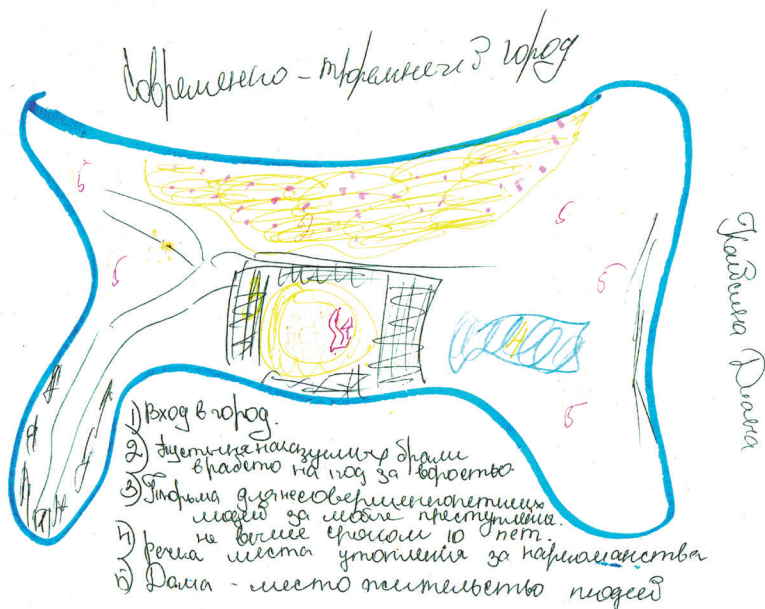 Современно-тюремнечий город
Диана
1) Вход в город.
2) Пустыня наказуимых брали
в работо на 1 год за воростьво
3) Тюрьма для несовершеннолетних
людей за любле преступлены.
не выше сроком 10 лет.
4) речка места утопления за наркоманства
5) Дома - место жительство людей
2
4
5
5
5
5
5